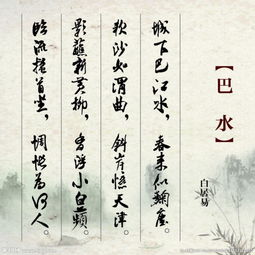 【巴 水】
白居易
城下巴江水，春来似麴尘。
软沙如渭曲，斜岸憶天津。
影蘸新黄柳，香浮小白蘋。
临流搔首坐，惆怅为何人。